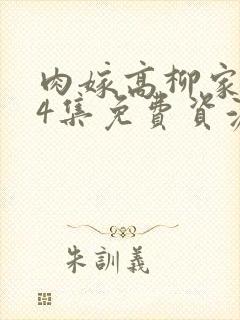 肉嫁高柳家
4集免費資
朱訓義